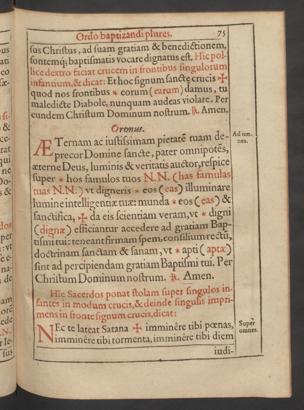 Ordo baptizandi plures. 75
sus Christus, ad suam gratiam & benedictionem,
fontemq; baptismatis vocare dignatus est. Hic pol-
lice dextro faciat crucem in frontibus singulorum
infantium, & dicat: Et hoc signum sanctę crucis ✠
quod nos frontibus * eorum (earum) damus, tu
maledicte Diabole, nunquam audeas violare. Per
eundem Christum Dominum nostrum. ℟. Amen.
Oremus.
ÆTernam ac iustissimam pietatē tuam de-
precor Domine sancte, pater omnipotēs,
æterne Deus, luminis & veritatis auctor, respice
super * hos famulos tuos N.N. (has famulas
tuas N.N.) vt digneris * eos (eas) illuminare
lumine intelligentiæ tuæ: munda * eos (eas) &
sanctifica, ✠ da eis scientiam veram, vt * digni
(dignæ) efficiantur accedere ad gratiam Bap-
tismi tui: teneant firmam spem, consilium rectū,
doctrinam sanctam & sanam, vt * apti (aptæ)
sint ad percipiendam gratiam Baptismi tui. Per
Christum Dominum nostrum. ℟. Amen.
Hic Sacerdos ponat stolam super singulos in-
fantes in modum crucis, & deinde singulis impri-
mens in fronte signum crucis, dicat:
NEc te lateat Satana ✠ imminēre tibi pœnas,
imminēre tibi tormenta, imminēre tibi diem
iudi-
Ad om-
nes.
Super
omnes.